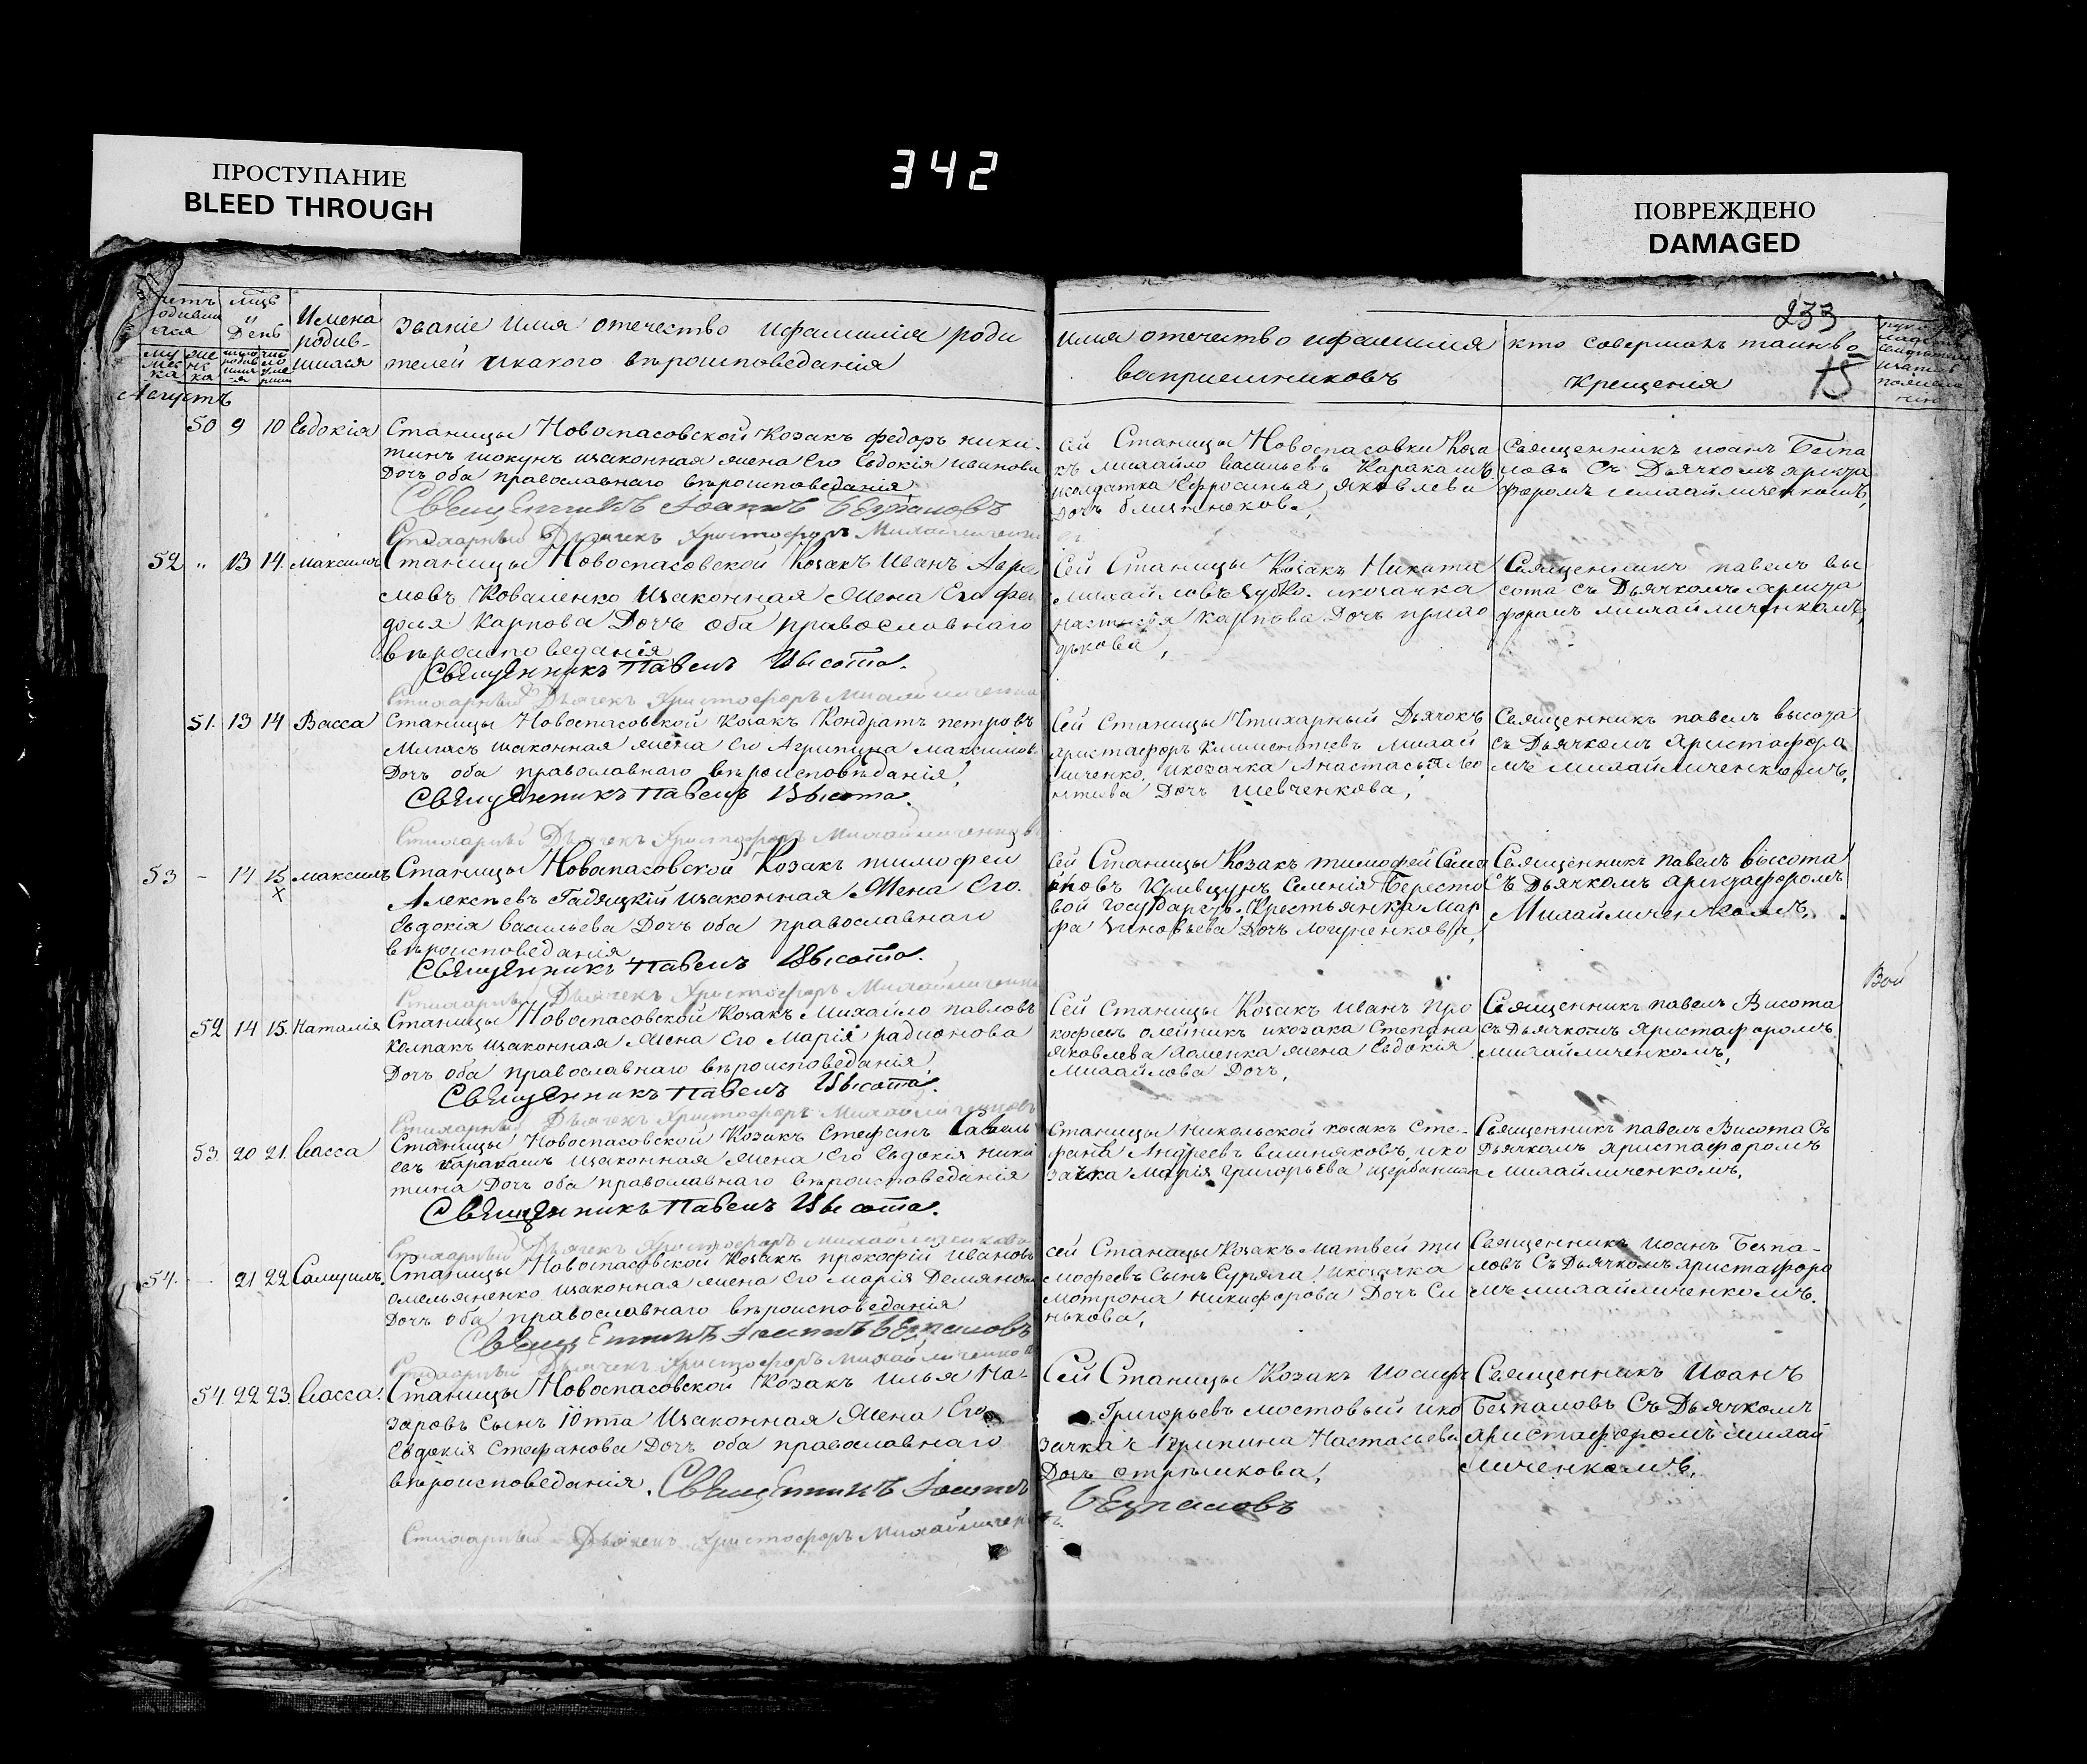 ПРОСТУПАНИЕ
BLEED THROUGH
342
ПОВРЕЖДЕНО
DAMAGED
233
15
День
Имена
родив-
шихся
Званіе Имя отечество ифамилія роди
телей икакого въроисповеданія
имя отечество ифамилия
воприемниковъ
кто совершалъ таинво
крещенія
Августъ
50 9 10 Евдокія
Станицы Новоспасовской Козакъ федоръ ники-
тинъ шокунъ изаконная жена Его Евдокія иванова
Дочь оба православнаго въроисповеданія,
Священникъ Іоаннъ Безпаловъ
Стихарный Дьячекъ Христофоръ
сей Станицы Новоспасовки Коза
къ михайло васильевъ Каракашъ
исолдатка Ефросинья Яковлева
Дочь
Священникъ иоанъ Безпа
ловъ Съ Дьячкомъ
форомъ михайличенкомъ,
52 " 13 14. Максимъ
Станицы Новоспасовской Козакъ Иванъ
мовъ Коваленко Изаконная Жена Его фе
досья Карпова Дочь оба православнаго
въроисповеданія
Священникъ Павелъ Высота.
Стихарный Дьячекъ Христофоръ
Сей Станицы Козакъ Никита
михайловъ Зубко. икозачка
настасія карпова Дочь
Священникъ павелъ вы
сота съ Дьячкомъ
форомъ михайличенкомъ,
51. 13 14 Васса
Станицы Новоспасовской Козакъ Кондратъ петровъ
Мигасъ изаконная жена его Агрипина максимов
Дочь оба православнаго въроисповъданія,
Священникъ Павелъ Высота.
Стихарный Дьячекъ Христофоръ
Сей Станицы Стихарный Дьячокъ
христафоръ Климентиевъ михай
личенко, икозачка Анастасья Ле
онтиева Дочь шевченкова,
Священникъ павелъ высота
съ Дьячкомъ Христафоро
мъ михайличенкомъ,
53 - 14 15 максимъ
Х
Станицы Новоспасовской Козакъ тимофей
Алексъевъ Гадяцкій изаконная Жена Его.
Евдокія васильева Дочь оба православнаго
въроисповеданія
Священникъ Павелъ Высота.
Стихарный Дьячекъ Христофоръ
Сей Станицы Козакъ тимофей Семе
новъ Кривцунъ Селенія Бересто
вой Государств. Крестьянка Мар
фа Зиновьева Дочь логуненкова,
Священникъ павелъ высота
съ Дьячкомъ христафоромъ
Михайличенкомъ,
Вой
52 14 15. Наталія
Станицы Новоспасовской Козакъ Михайло павловъ
Колпакъ изаконная Жена Его Марія радионова
Дочь оба православнаго въроисповеданія,
Священникъ Павелъ Высота.
Стихарный Дьячекъ Христофоръ Михайличенковъ
Сей Станицы Козакъ иванъ Про
кофиевъ олейникъ икозака Степана
Яковлева жена Евдокія
Михайлова Дочь,
Священникъ павелъ Висота
съ Дьячкомъ Христафоромъ
михайличенкомъ,
53. 20 21. васса
Станицы Новоспасовской Козакъ Стефанъ Савель
евъ Каракашъ изаконная жена Его Евдокія ники
тина Дочь оба православнаго въроисповеданія
Священникъ Павелъ Высота.
Стихарный Дьячекъ Христофоръ Михайличенковъ
Станицы никольской козакъ Сте-
фанъ Андреевъ вишняковъ, ико
зачка Марія григорьева щербаниха
Священникъ павелъ Висота Съ
Дьячкомъ христафоромъ
михайличенкомъ,
54. - 21 22 Самуилъ
Станицы Новоспасовской Козакъ прокофій Ивановъ
омельяненко изаконная жена его марія Демянова
Дочь оба православнаго въроисповеданія
Священникъ Іоаннъ Безпаловъ
Стихарный Дьячекъ Христофоръ Михайличенко
сей Станицы Козакъ матвей ти
мофеевъ Сынъ Суряга, икозачка
мотрона никифорова Дочь Си
нькова,
Священникъ иоанъ Безпа-
ловъ Съ Дьячкомъ христафоро
мъ михайличенкомъ.
54. 22 23. васса.
Станицы Новоспасовской Козакъ илья На-
заровъ Сынъ Изаконная Жена Его
Евдокія Стефанова Дочь оба православнаго
въроисповеданія. Священникъ Іоаннъ
Безпаловъ
Стихарный Дьячекъ Христофоръ
Сей Станицы Козакъ Иосифъ
Григорьевъ мостовый ико
зачка Настасьева
Дочь стрълкова,
Священникъ Иоанъ
Безпаловъ Съ Дьячкомъ
христафоромъ михай
личенкомъ,